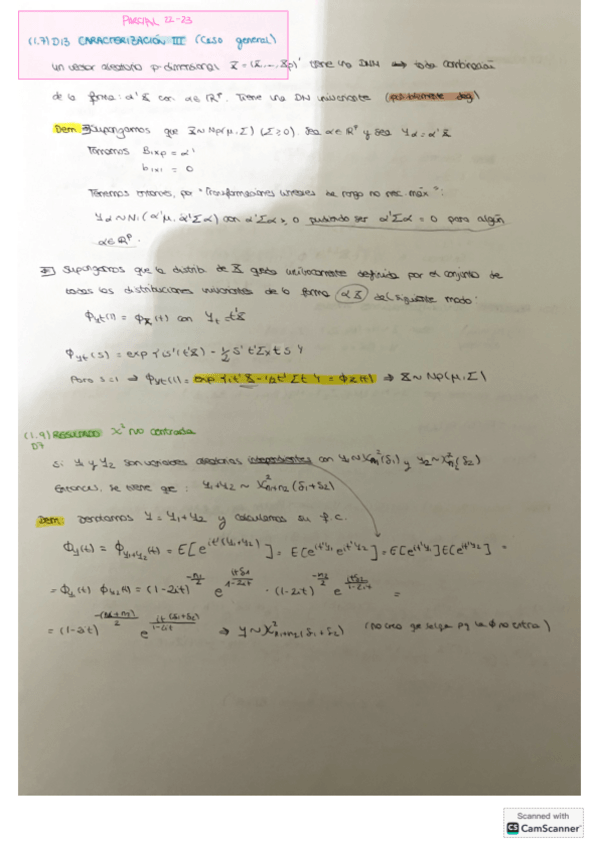 PARCIAL 22-23
(1.7) D13 CARACTERIZACIÓN III (Caso general)
Un vector aleatorio p-dimensional X = (X₁, ..., Xp)' tiene una DNM ⟺ toda combinación
de la forma: α'X con α∈ℝᵖ. Tiene una DN univariante (posiblemente deg)
Dem ⇒ Supongamos que X ~ Np(μ, Σ) (Σ≥0). Sea α∈ℝᵖ y sea Yα = α'X
Tomamos B₁ₓp = α'
b₁ₓ₁ = 0
Tenemos entonces, por "Transformaciones lineales de rango no nec. máx":
Yα ~ N₁(α'μ, α'Σα) con α'Σα ≥ 0 pudiendo ser α'Σα = 0 para algún
α∈ℝᵖ.
⇐ Supongamos que la distrib. de X queda unívocamente definida por el conjunto de
todas las distribuciones univariantes de la forma α'X del siguiente modo:
ϕyt(1) = ϕX(t) con Yt = t'X
ϕyt(s) = exp{is'(t'X) - 1/2 s't'Σx t s}
Para s=1 ⇒ ϕyt(1) = exp{it'X - 1/2 t'Σt} = ϕX(t) ⇒ X ~ Np(μ, Σ)
(1.9) RESULTADO χ² no centrada
D7
Si Y₁ y Y₂ son variables aleatorias independientes con Y₁ ~ χ²n₁(δ₁) y Y₂ ~ χ²n₂(δ₂)
Entonces, se tiene que: Y₁+Y₂ ~ χ²n₁+n₂(δ₁+δ₂)
Dem: Denotamos Y = Y₁+Y₂ y calculamos su f.c.
ϕy(t) = ϕY₁+Y₂(t) = E[e^{it'(Y₁+Y₂)}] = E[e^{it'Y₁} e^{it'Y₂}] = E[e^{it'Y₁}]E[e^{it'Y₂}] =
= ϕY₁(t) ϕY₂(t) = (1-2it)^{-n₁/2} e^{itδ₁/1-2it} · (1-2it)^{-n₂/2} e^{itδ₂/1-2it} =
= (1-2it)^{-(n₁+n₂)/2} e^{it(δ₁+δ₂)/1-2it} ⇒ Y ~ χ²n₁+n₂(δ₁+δ₂) (no creo que salga pq la ϕ no entra)
Scanned with
CS CamScanner